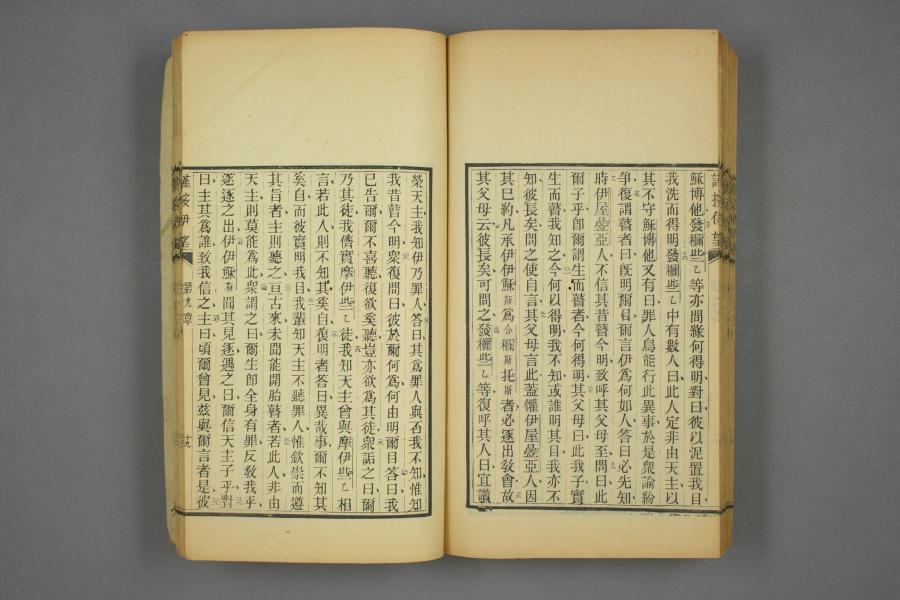 穌博他發禰些乙等亦問緣何得明對曰彼以泥置我目
我洗而得明發禰些乙中有數人曰此人定非由天主以
其不守穌博他又有曰罪人烏能行此異事於是衆論紛
爭復謂瞽者曰旣明爾目爾言伊爲何如人答曰必先知
時伊屋疊亞人不信其昔瞽今明致呼其父母至問曰此
爾子乎卽爾謂生而瞽者今何得明其父母曰此我子實
生而瞽我知之今何以得明我不知或誰明其目我亦不
知彼長矣問之使自言其父母言此蓋懼伊屋疊亞人因
其已約凡承伊伊穌斯爲合禰斯托斯者必逐出教會故
其父母云彼長矣可問之發禰些乙等復呼其人曰宜讚
榮天主我知伊乃罪人答曰其爲罪人與否我不知惟知
我昔瞽今明衆復問曰彼於爾何爲何由明爾目答曰我
已告爾爾不喜聽復欲奚聽豈亦欲爲其徒衆詬之曰爾
乃其徒我儕實摩伊些乙徒我知天主曾與摩伊些乙相
言若此人則不知其奚自復明者答曰異哉事爾不知其
奚自而彼實明我目我輩知天主不聽罪人惟欽崇而遵
其旨者主則聽之亘古來未聞能開胎瞽者若此人非由
天主則莫能爲此衆謂之曰爾生卽全身有罪反教我乎
遂逐之出伊伊穌斯聞其見逐遇之曰爾信天主子乎對
曰主其爲誰致我信之主曰頃爾曾見茲與爾言者是彼
第九章